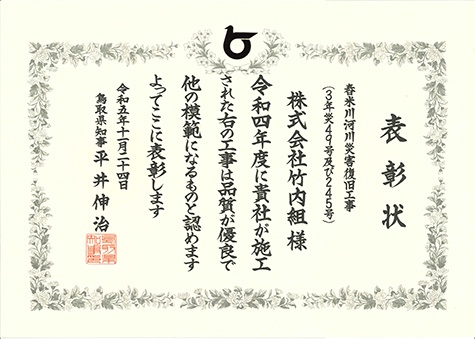 表彰状
春米川河川災害復旧工事
（３年災４９号及び２４５号）
株式会社竹内組 様
令和四年度に貴社が施工
された右の工事は品質が優良で
他の模範になるものと認めます
よってここに表彰します
令和五年十一月二十四日
鳥取県知事 平井伸治